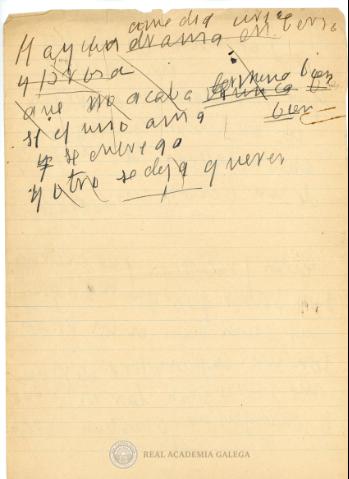 comedia
Hay un drama en verso
y prosa
que no acaba termina bien
nunca bien
si el uno ama
y se entrega
y otro se deja querer
REAL ACADEMIA GALEGA